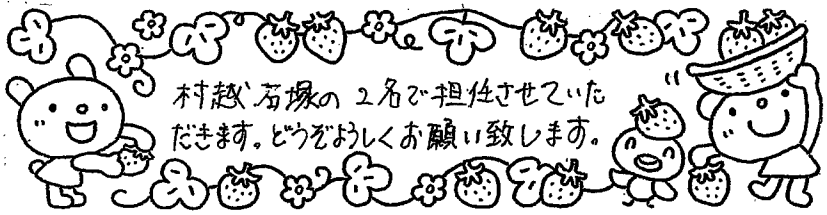 村越 石塚の 2名で担任させていた
だきます。どうぞよろしくお願い致します。